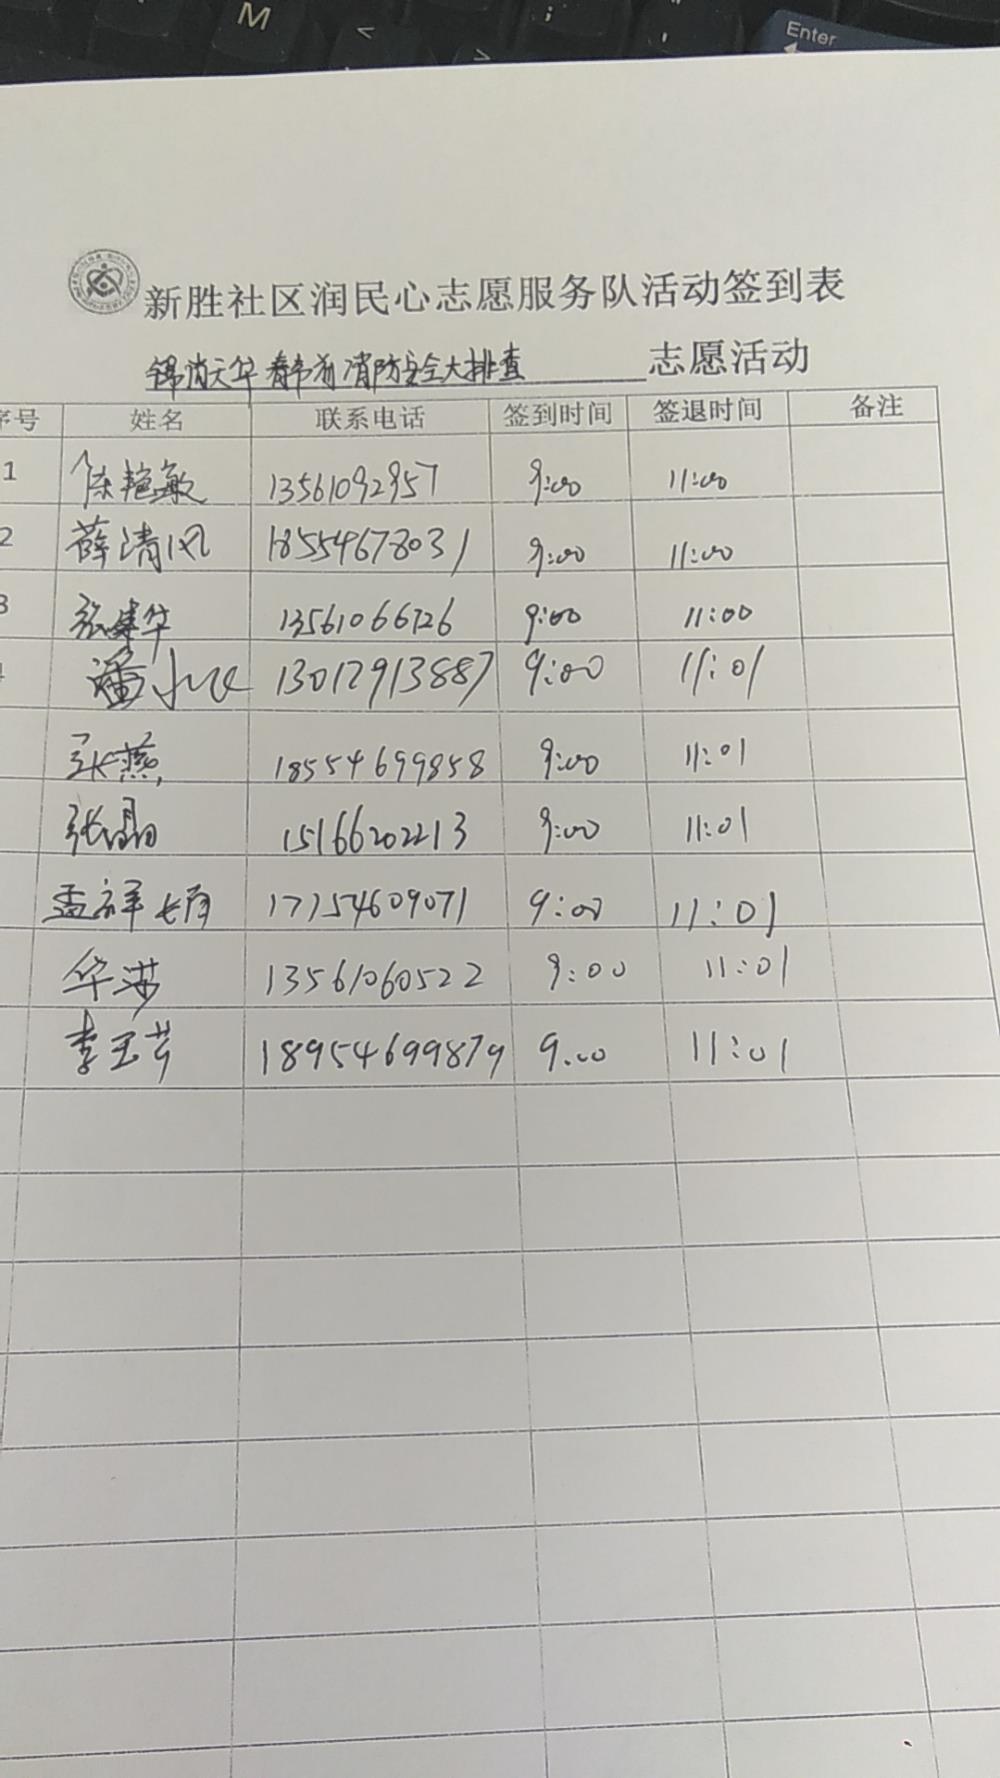 M
<
>
;
Enter
新胜社区润民心志愿服务队活动签到表
春节前消防安全大排查 志愿活动
序号 姓名 联系电话 签到时间 签退时间 备注
1 陈艳敏 13561092957 9:00 11:00
2 薛清风 18554678031 9:00 11:00
3 张建华 13561066726 9:00 11:00
潘小 13012913887 9:00 11:01
张燕 18554699858 9:00 11:01
张晶 15166202213 9:00 11:01
孟祥娟 17154609071 9:00 11:01
华 13561060522 9:00 11:01
李玉芳 18954699879 9.00 11:01